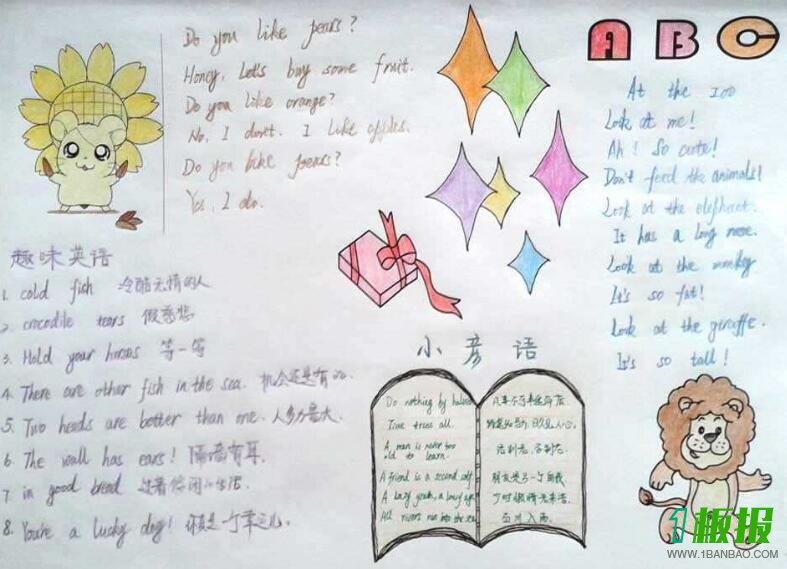 Do you like pears?
Honey, Let's buy some fruit.
Do you like orange?
No, I don't. I like apples.
Do you like pears?
Yes, I do.
ABC
At the zoo
Look at me!
Ah! So cute!
Don't feed the animals!
Look at the elephant.
It has a long nose.
Look at the monkey
It's so fat!
Look at the giraffe.
It's so tall!
趣味英语
1. cold fish 冷酷无情的人
2. crocodile tears 假慈悲
3. Hold your horses 等一等
4. There are other fish in the sea. 机会还是有的.
5. Two heads are better than one. 人多力量大.
6. The wall has ears! 隔墙有耳.
7. in good bread 过着悠闲的生活.
8. You're a lucky dog! 你真是一个幸运儿.
小彦语
Do nothing by halves
Time tries all.
A man is never too
old to learn.
A friend is a second self.
A lazy youth, a lousy age
All rivers run into the sea
凡事不可半途而废
路遥知马力,日久见人心.
活到老,学到老.
朋友是另一个自我
少时懒惰老来苦.
百川入海.
1板报
WWW.1BANBAO.COM